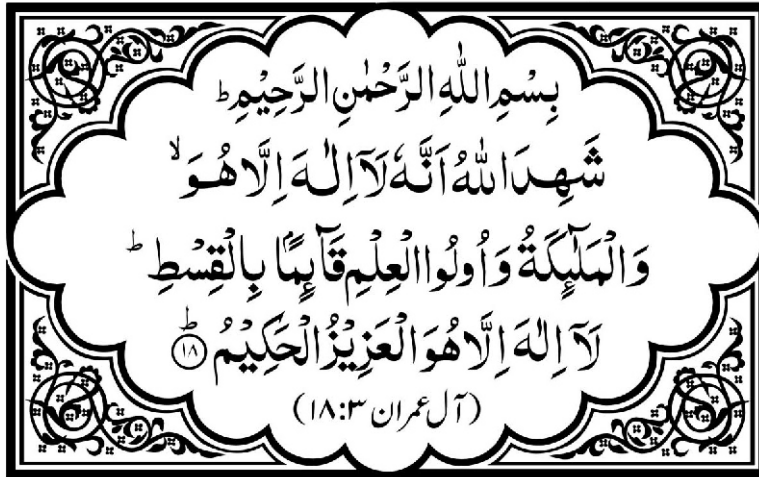 بِسْمِ اللّٰهِ الرَّحْمٰنِ الرَّحِيْمِ ؕ
شَهِدَ اللّٰهُ اَنَّهٗ لَاۤ اِلٰهَ اِلَّا هُوَ ۙ
وَالْمَلٰٓئِكَةُ وَاُولُوا الْعِلْمِ قَآئِمًاۢ بِالْقِسْطِ ؕ
لَاۤ اِلٰهَ اِلَّا هُوَ الْعَزِيْزُ الْحَكِيْمُ ؕ ﴿۱۸﴾
(آل عمران ۱۸:۳)